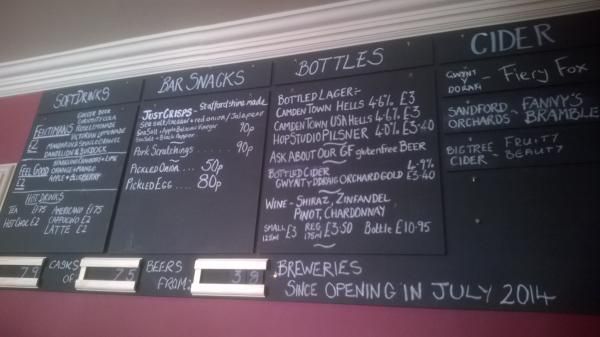 SOFT DRINKS
FENTIMANS
£2
GINGER BEER
CURIOSITY COLA
ROSE LEMONADE
VICTORIAN LEMONADE
MANDARIN & SEVILLE ORANGE
DANDELION & BURDOCK
FEEL GOOD
£2
CRANBERRY + LIME
ORANGE + MANGO
APPLE + BLUEBERRY
HOT DRINKS
TEA £1.75 AMERICANO £1.75
HOT CHOC £2 CAPPUCINO £2
LATTE £2
BAR SNACKS
JUST CRISPS - Staffordshire made
Sea salt / cheddar & red onion / Jalapeno
Sea Salt & Apple Balsamic Vinegar
Sea Salt & Black Pepper 70p
Pork Scratchings ... 90p
PICKLED ONION ... 50p
PICKLED EGG .... 80p
BOTTLES
BOTTLED LAGER:-
CAMDEN TOWN HELLS 4.6% £3
CAMDEN TOWN USA HELLS 4.6% £3
HOP STUDIO PILSNER 4.0% £3.40
ASK ABOUT OUR GF gluten free BEER
BOTTLED CIDER 4.9%
GWYNT Y DDRAIG ORCHARD GOLD £3.40
WINE - SHIRAZ, ZINFANDEL
PINOT, CHARDONNAY
SMALL 125ml £3 REG 175ml £3.50 Bottle £10.95
CIDER
GWYNT Y DDRAIG - Fiery Fox
SANDFORD ORCHARDS - FANNY'S BRAMBLE
BIG TREE CIDER - FRUITY BEAUTY
79 CASKS OF 75 BEERS FROM: 39 BREWERIES
SINCE OPENING IN JULY 2014